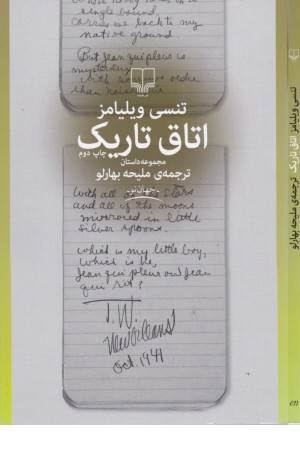 single bound
carries me back to my
native ground
But Jean qui pleure is
mysterious
than
تنسی ویلیامز
اتاق تاریک
چاپ دوم
مجموعه داستان
ترجمه‌ی ملیحه بهارلو
جهان نو
With all of the stars
and all of the moons
mirrored in little
silver spoons.
which is my little boy,
which is he,
Jean qui pleure ou Jean
qui rit?
T. W.
New Orleans
Oct. 1941
تنسی ویلیامز اتاق تاریک ترجمه‌ی ملیحه بهارلو